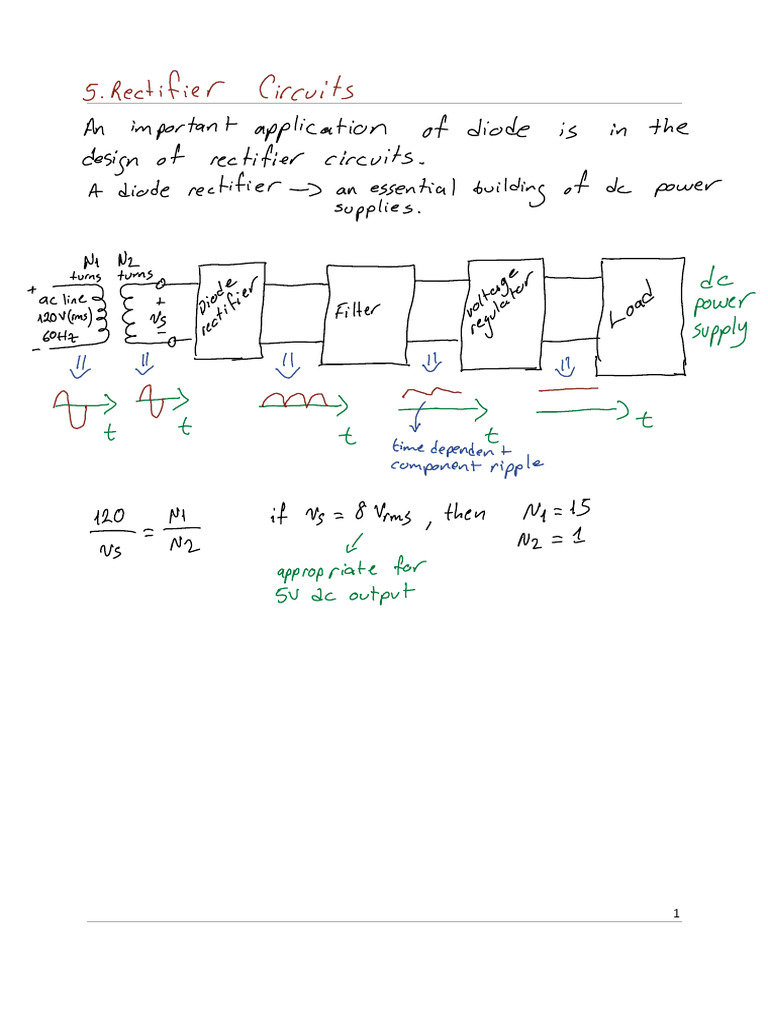 5. Rectifier Circuits
An important application of diode is in the
design of rectifier circuits.
A diode rectifier → an essential building of dc power
supplies.
N1 turns
N2 turns
+
ac line
120V(rms)
60Hz
-
+
vs
-
Diode rectifier
Filter
voltage regulator
Load
dc
power
supply
t
t
t
t
t
time dependent
component ripple
120/vs = N1/N2
if vs = 8 Vrms, then N1 = 15
N2 = 1
appropriate for
5V dc output
1